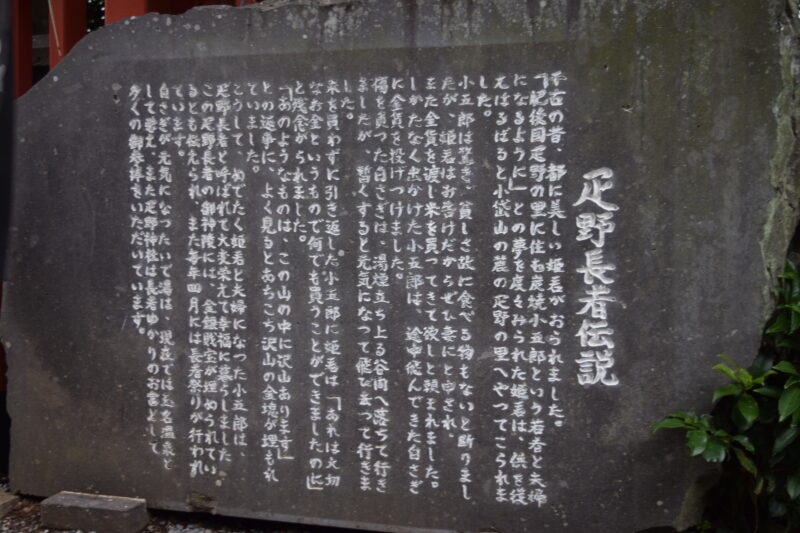 疋野長者伝説
千古の昔、都に美しい姫君がおられました。
「肥後国疋野の里に住む炭焼小五郎という若者と夫婦
になるように」との夢を度々みられた姫君は、供を従
えはるばると小岱山の麓の疋野の里へやってこられま
した。
小五郎は驚き、貧しさ故に食べる物もないと断りまし
たが、姫君はお告げだからぜひ妻にと申され、
また金貨を渡し米を買ってきて欲しと頼まれました。
しかたなく出かけた小五郎は、途中飛んできた白さぎ
に金貨を投げつけました。
傷を負った白さぎは、湯煙立ち上る谷間へ落ちて行き
ましたが、暫くすると元気になって飛び去って行きま
した。
米を買わずに引き返した小五郎に姫君は「あれは大切
なお金というもので何でも買うことができましたのに」
と残念がられました。
「あのようなものは、この山の中に沢山あります」
との返事に、よく見るとあちこち沢山の金塊が埋もれ
ていました。
こうして、めでたく姫君と夫婦になった小五郎は、
疋野長者と呼ばれて大変栄えて幸福に暮らしました。
この疋野長者の御神陵には、金銀財宝が埋められてい
るとも伝えられ、また毎年四月には長者祭りが行われ
ています。
白さぎが元気になったいで湯は、現在では玉名温泉と
して栄え、また疋野神社は長者ゆかりのお宮として
多くの御参拝をいただいています。